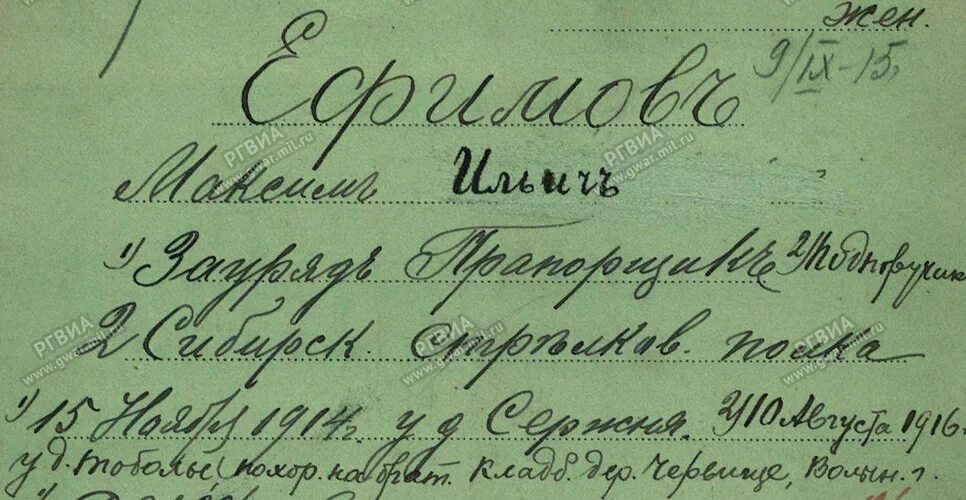 жен.
9/IX-15.
Ефимовъ
Максимъ Ильичъ
1) Заурядъ Прапорщикъ 2) Подпоручик
2 Сибирск. стрѣлков. полка
1) 15 Ноября 1914 г. у д. Сержня. 2) 10 Августа 1916
у д. Тоболы, похор. на брат. кладб. дер. Червище, Волын. г.
РГВИА
www.gwar.mil.ru